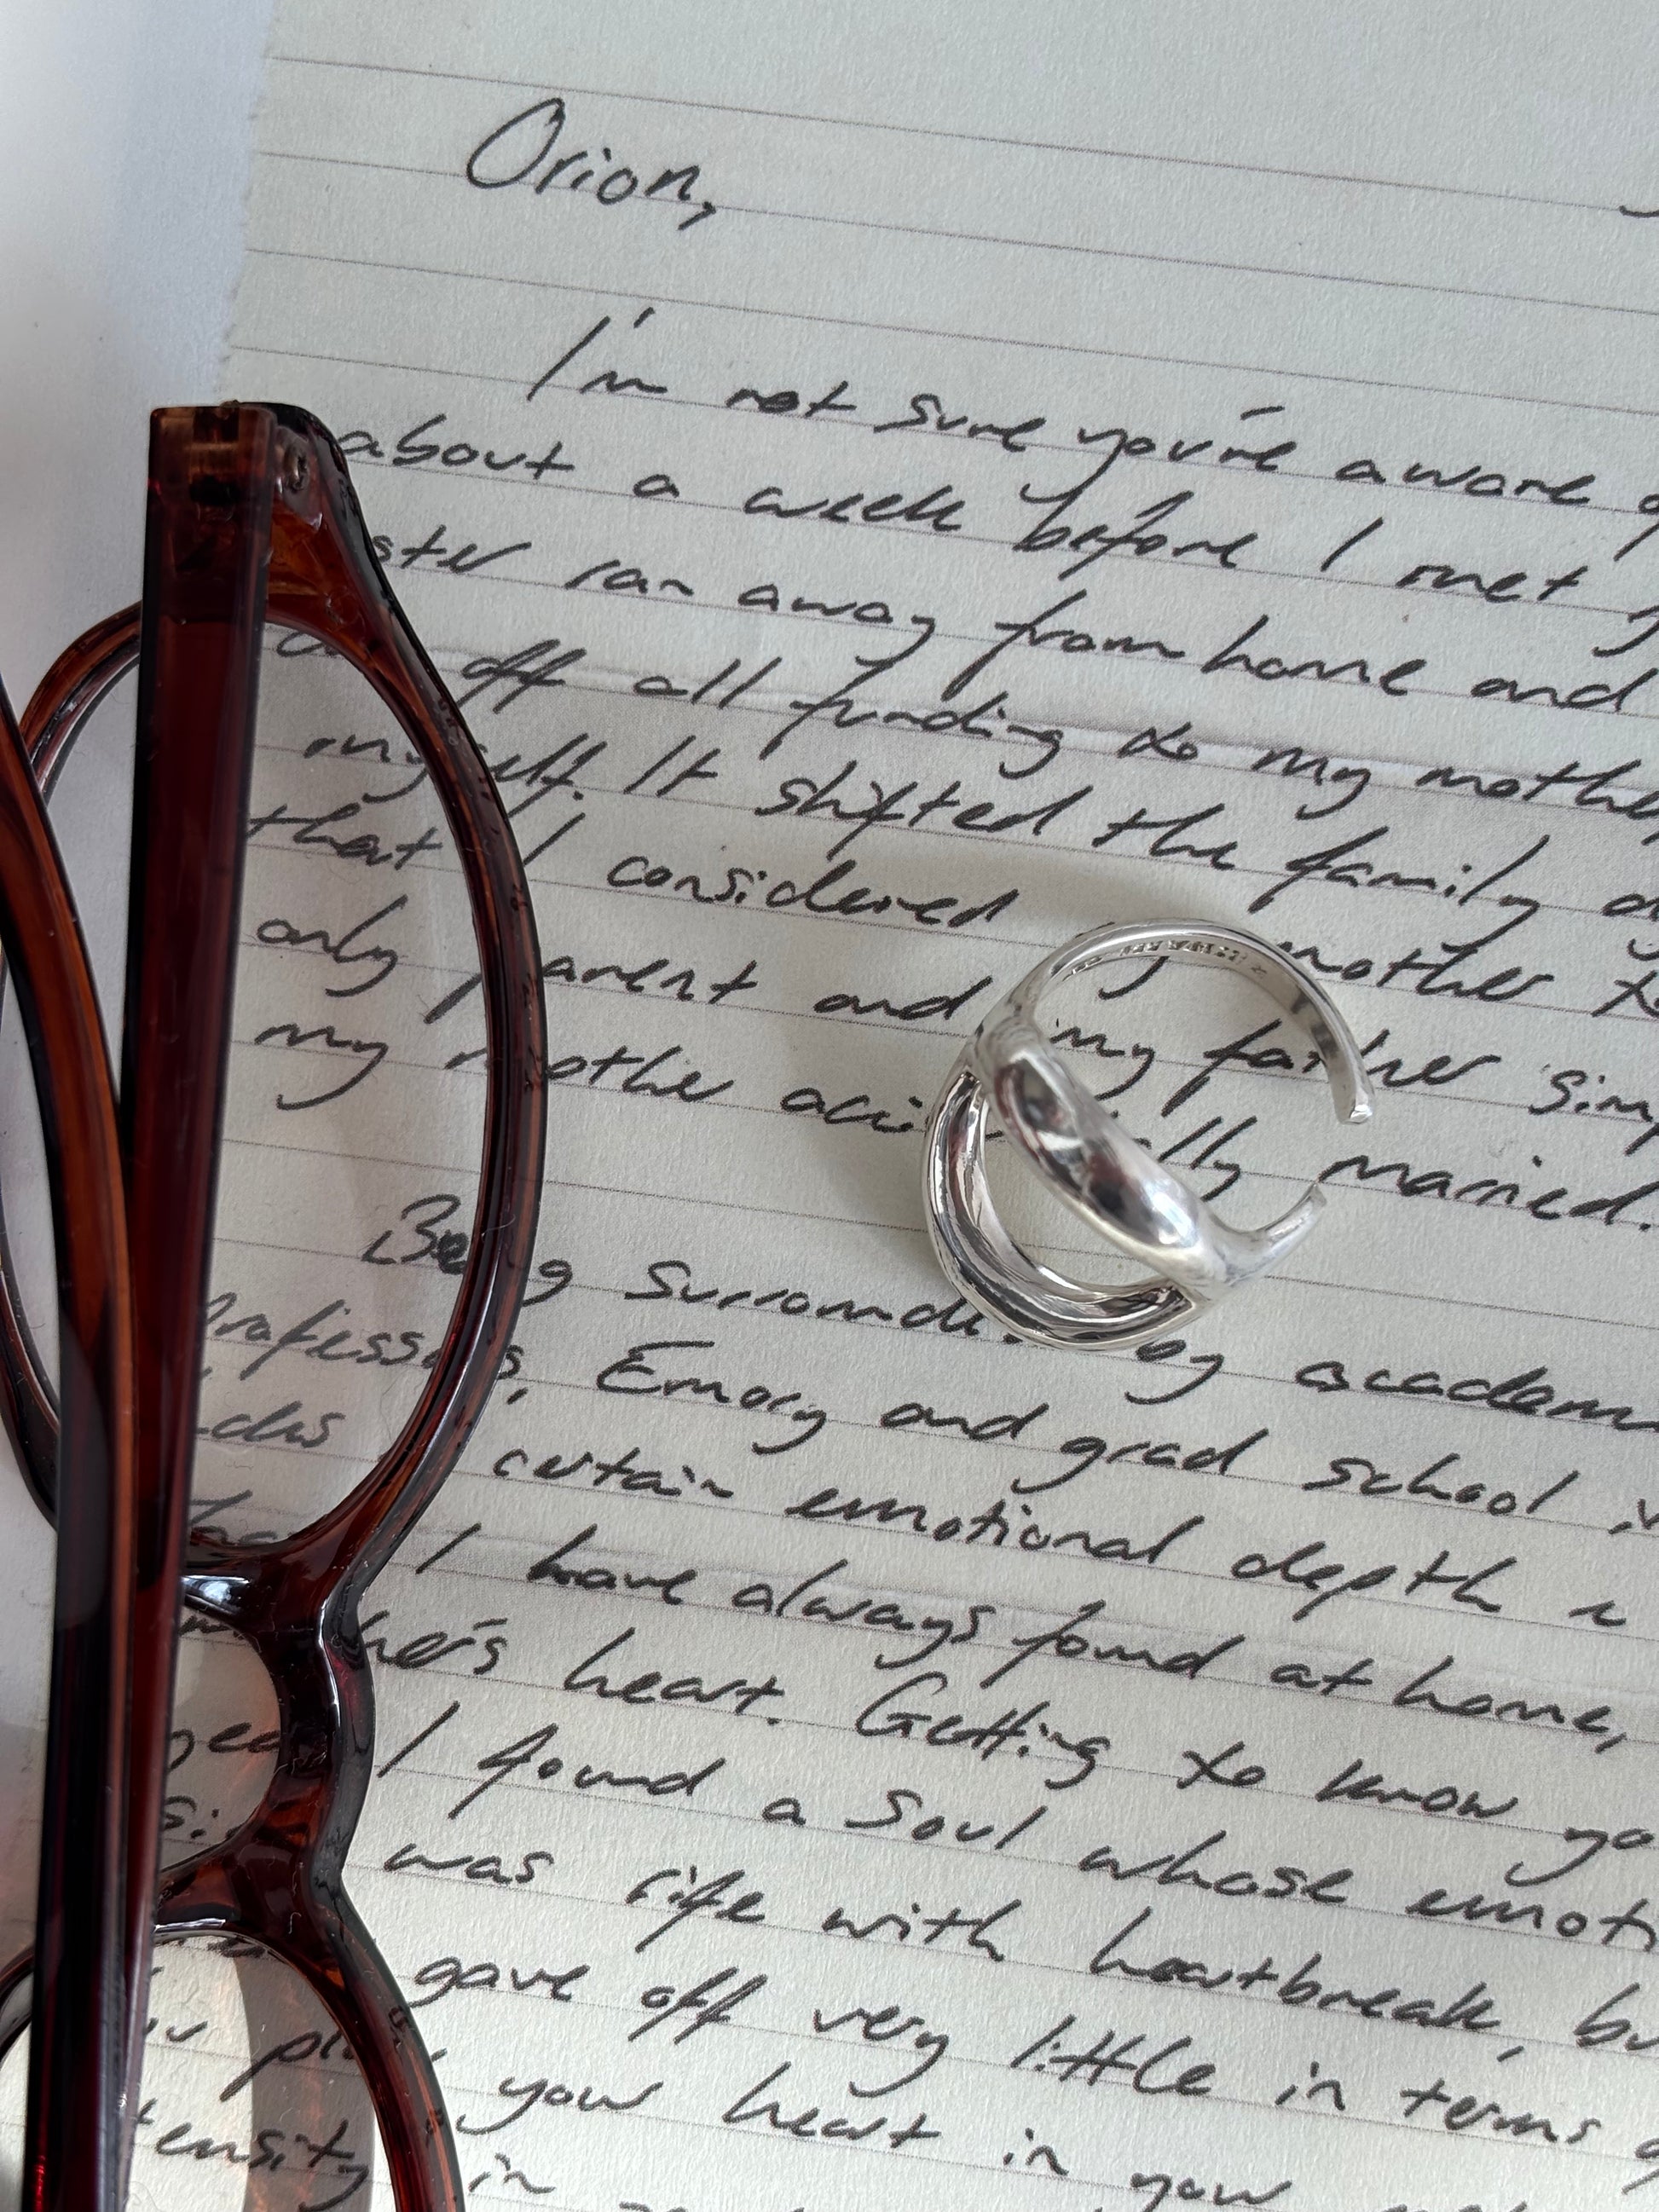 Orion,
I'm not sure you're aware
about a week before I met
ster ran away from home and
off all funding to my mother,
myself. It shifted the family
that I considered mother
only parent and my father sim
my mothe acci lly married.
Be g surround by academ
Professo s, Emory and grad school
certain emotional depth
I have always found at home,
her's heart. Getting to know yo
I found a soul whose emoti
was rife with heartbreak, bu
gave off very little in terms
your heart in your
tensity in